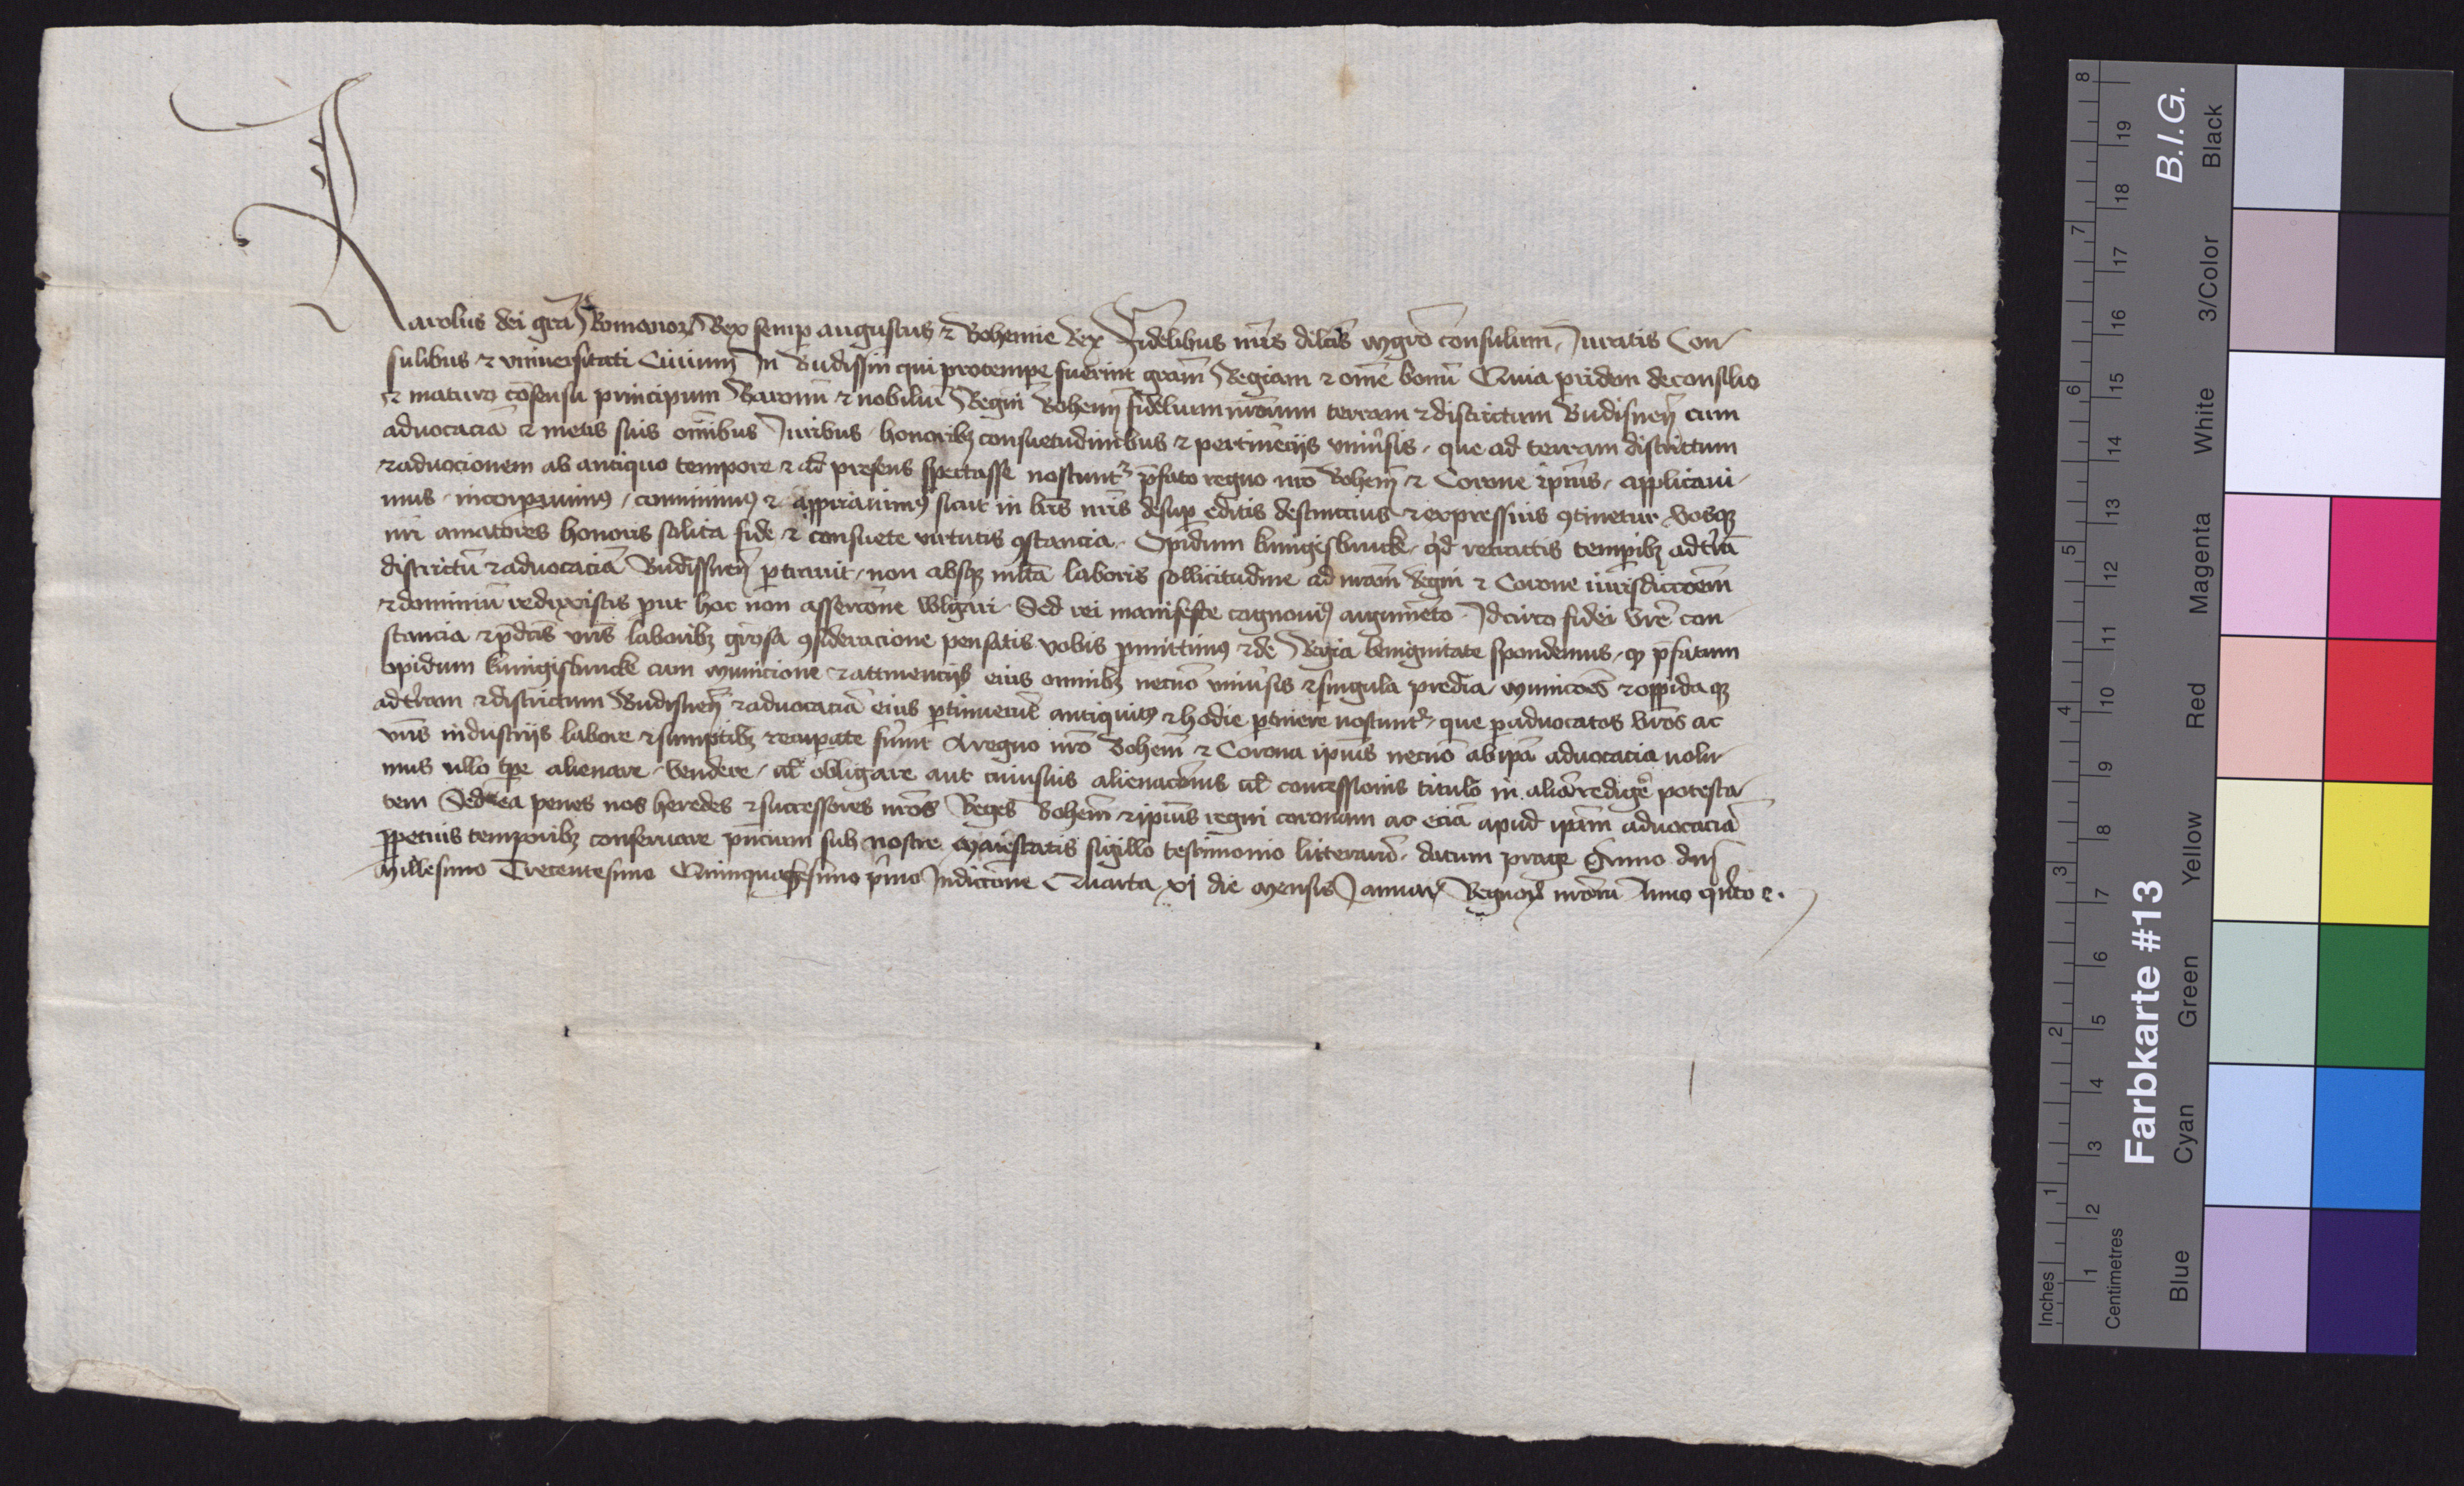 Karolus dei gra Romanoꝝ Rex semp augustus ⁊ Bohemie Rex Fidelibus nr̄is dilc̄is mgr̄o consulum, Juratis Con-
sulibus ⁊ vniuersitati Ciuium In Budissin qui protempe fuerint gram̄ Regiam ⁊ om̄e bonū Quia pridem de consilio
⁊ maturo cōsensu principum Baronū ⁊ nobiliū Regni Bohem̄ fidelium nr̄orum terram ⁊ districtum Budisnen̄ cum
aduocacia ⁊ metis suis om̄ibus Juribus honoribꝫ consuetudinibus ⁊ pertinēcijs vniūsis, que ad terram districtum
⁊ aduocionem ab antiquo tempore ⁊ ad presens spectasse noscuntᷣ p̄fato regno nr̄o Bohem̄ ⁊ Corone ip̄ius, applicaui-
mus, incorpauimꝯ, conuinimꝯ ⁊ appriauimꝯ sicut in lr̄is nr̄is desup editis destinccius ⁊ expressius ꝯtinetur Vosqꝫ
nri amatores honoris solita fide ⁊ consuete virtutis ꝯstancia, Opidum kunigisbrucke, qd̄ retroactis tempibꝫ ad tr̄ā
districtū ⁊ aduocaciā Budissnen̄ ptinuit, non absqꝫ mlta laboris sollicitudine ad nr̄am̄ Regni ⁊ Corone iurisdiccōem̄
⁊ dominiū redixistis put hoc non assercōne wlgari, Sed rei manifeste cognouiꝯ argumēto, Idcirco fidei vr̄e con-
stancia ⁊ p̄dc̄is vr̄is laboribꝫ gr̄osa ꝯsideracione pensatis vobis pmittimꝯ ⁊ de Regia benignitate spondemus, qꝫ p̄fatum
opidum kunigisbrucke cum municione ⁊ attinencijs eius omnibꝫ necnō vniūsis ⁊ singula predia, municōes ⁊ oppida qꝫ
ad tr̄am ⁊ districtum Budisnen̄ ⁊ aduocaciā eius ptinuerūt antiquitꝯ ⁊ hodie ptinere noscuntᷣ, que p aduocatos vr̄os ac
vr̄is industrijs labore ⁊ sumptibꝫ recupate sunt A regno nr̄o Bohem̄ ⁊ Corona ip̄ius necnō ab ip̄a aduocacia nolu-
mus ullo tpe alienare, vendere, ul̄ obligare aut cuiusuis alienacōnis ul̄ concessionis titulo in aliā redigē potesta-
tem Sed ea penes nos heredes ⁊ successores nr̄os Reges Bohem̄ ⁊ ip̄ius regni coronam ac eciā apud ip̄am̄ aduocaciā
ppetuis temporibꝫ conseruare pn̄cium sub nostre Maiestatis sigillo testimonio litterarū, datum prage Anno dn̄i
Millesimo Trecentesimo Quinquagesimo p̄mo Indiccōne Quarta, xj die Mensis Januarij Regnoꝝ nr̄orū Anno qnto ⁊c.
B.I.G.
Farbkarte #13
Inches 1 2 3 4 5 6 7 8
Centimetres 1 2 3 4 5 6 7 8 9 10 11 12 13 14 15 16 17 18 19
Blue Cyan Green Yellow Red Magenta White 3/Color Black